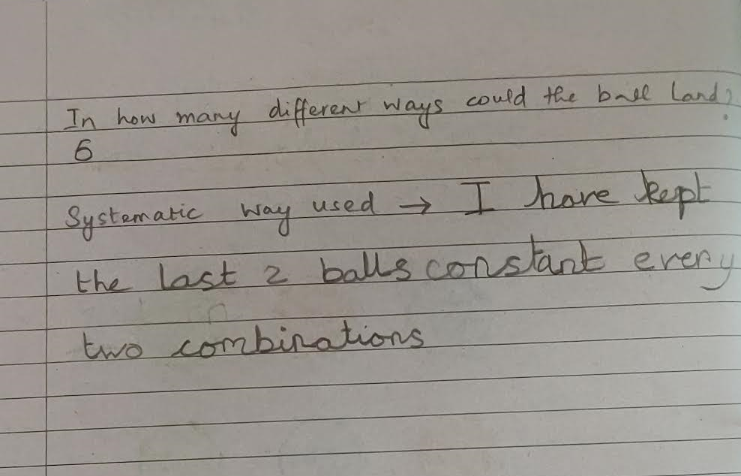 In how many different ways could the ball land?
6
Systematic way used → I have kept
the last 2 balls constant every
two combinations